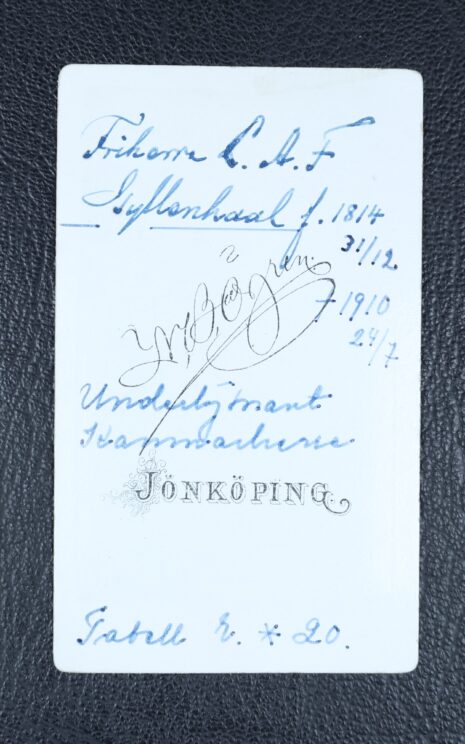 Friherre C. A. F
Gyllenhaal f. 1814
31/12
† 1910
24/7
Underlöjtnant
Kammarherre
JÖNKÖPING.
Tabell * 20.